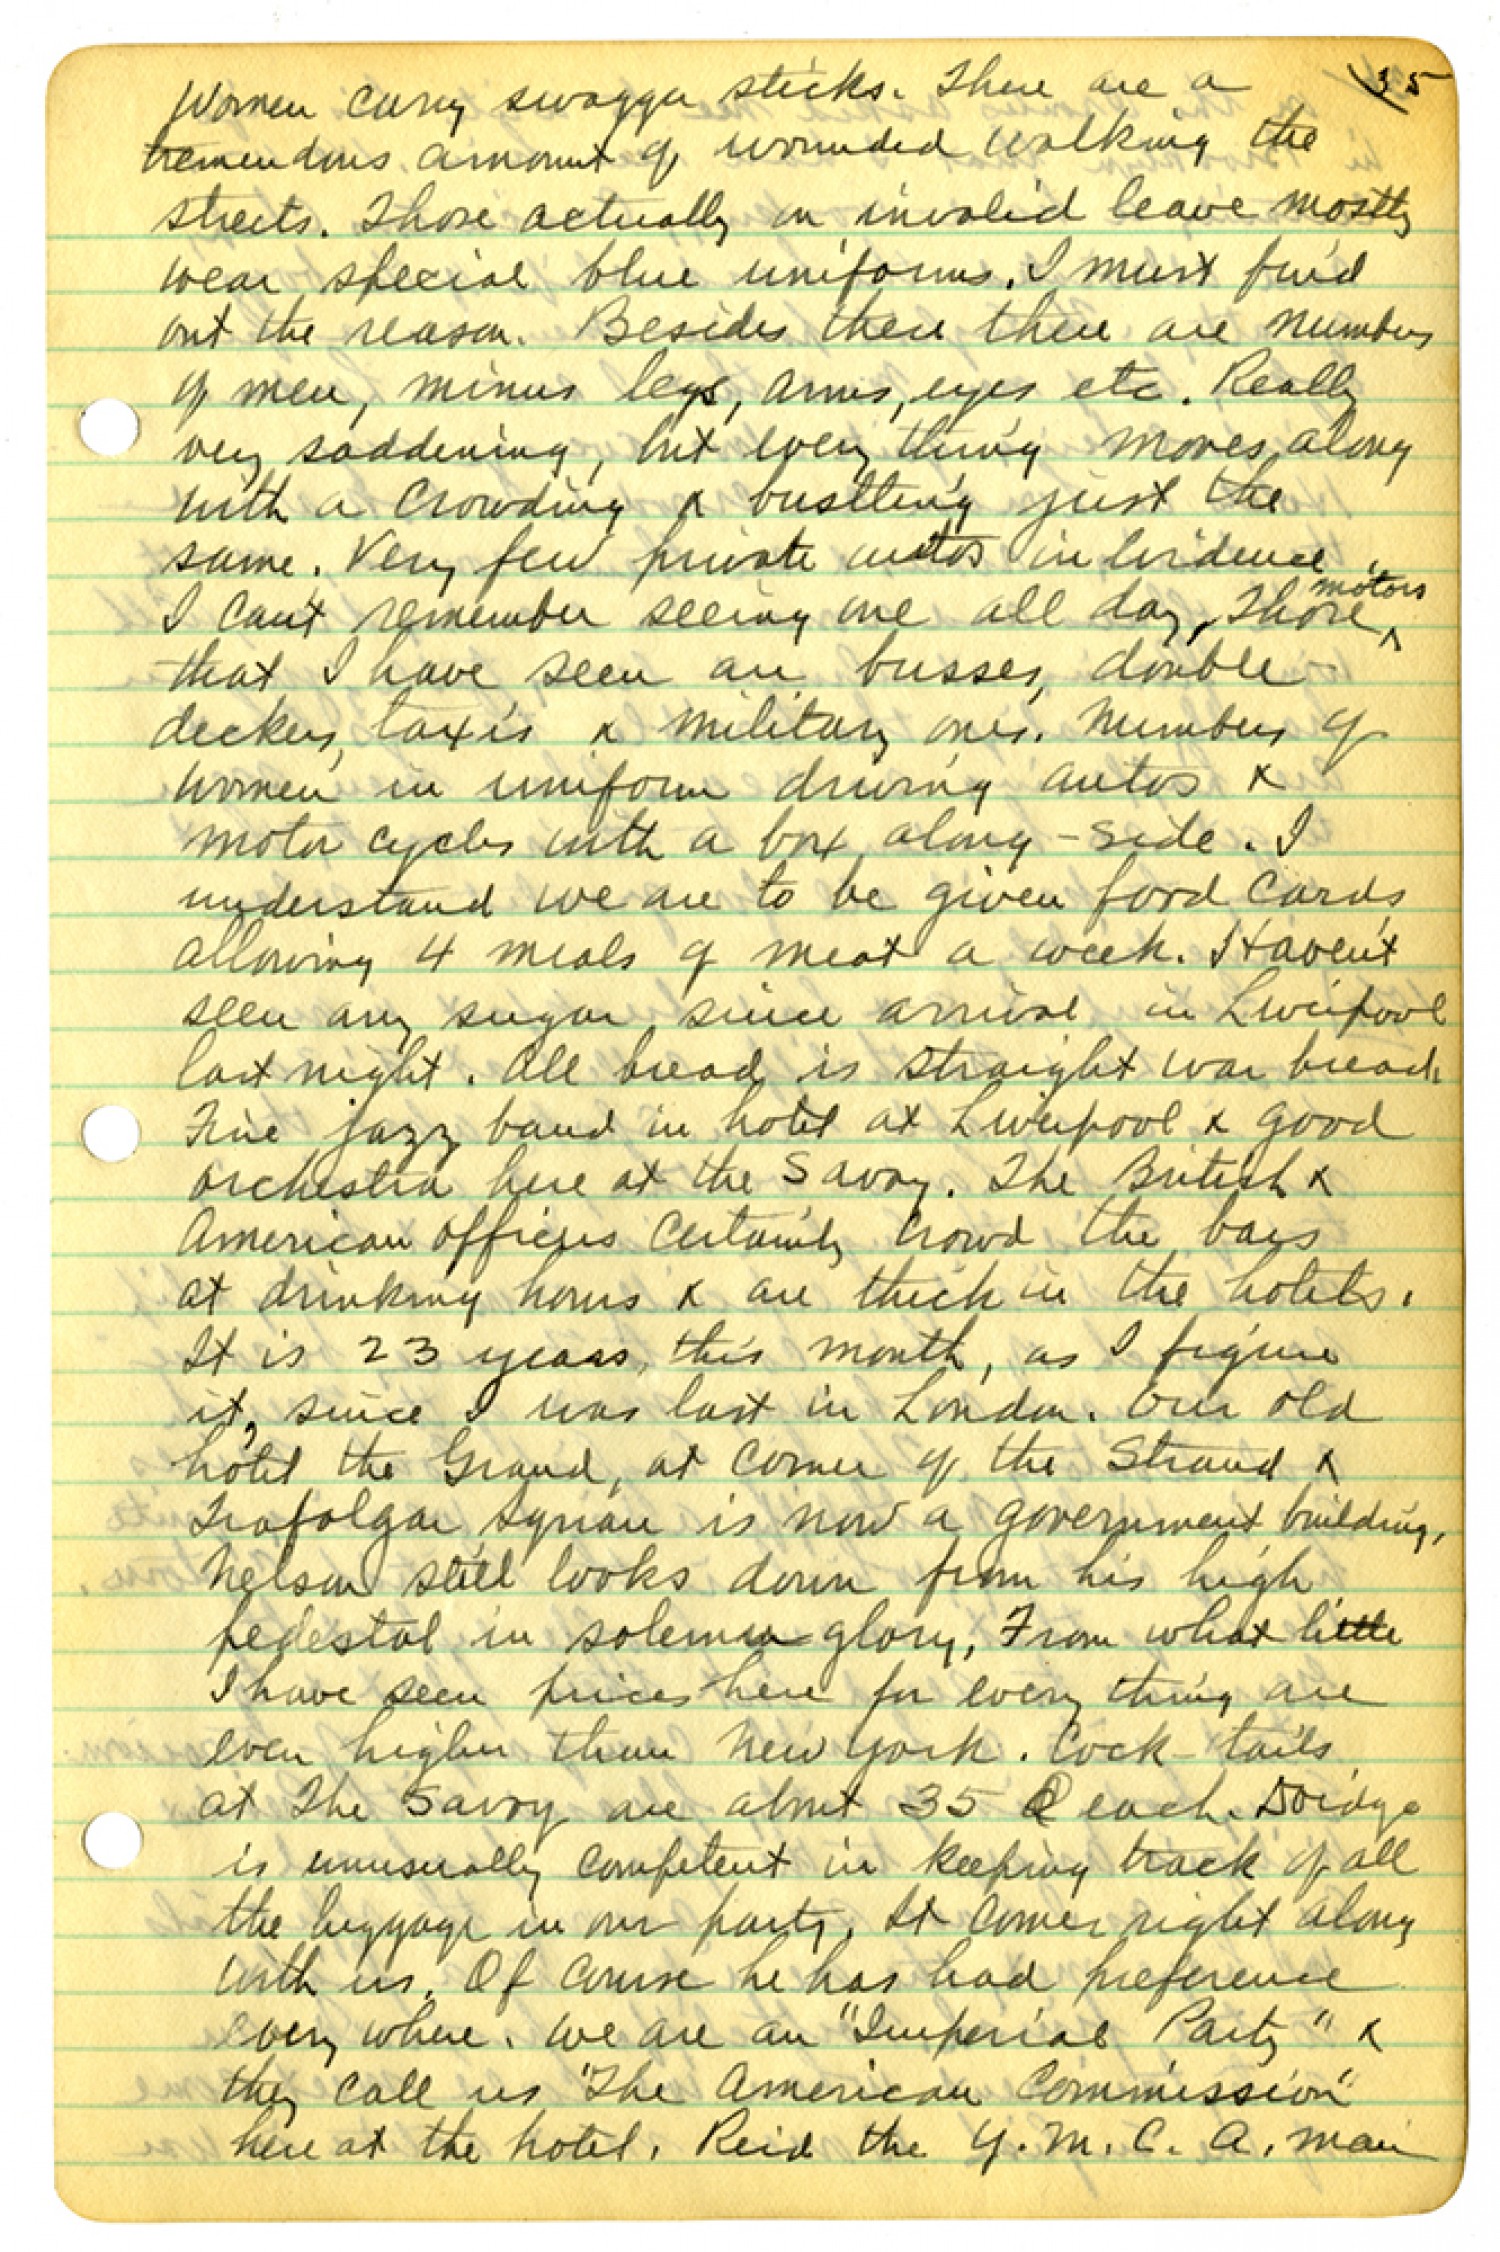 35
Women carry swagger sticks. There are a
tremendous amount of wounded walking the
streets. Those actually on invalid leave mostly
wear special blue uniforms. I must find
out the reason. Besides these there are numbers
of men, minus legs, arms, eyes etc. Really
very saddening, but every thing moves along
with a crowding & bustling just the
same. Very few private autos in evidence
I can't remember seeing one all day, Those motors
that I have seen are busses, double-
deckers, taxis & military ones. Numbers of
women in uniform driving autos &
motor cycles with a box along-side. I
understand we are to be given food cards
allowing 4 meals of meat a week. Haven't
seen any sugar since arrival in Liverpool
last night. All bread is straight war bread.
Fine jazz band in hotel at Liverpool & good
orchestra here at the Savoy. The British &
American officers certainly crowd the bars
at drinking hours & are thick in the hotels.
It is 23 years, this month, as I figure
it, since I was last in London. Our old
hotel the Grand, at corner of the Strand &
Trafolgar Square is now a government building,
Nelson still looks down from his high
pedestal in solemn glory. From what little
I have seen prices here for every thing are
even higher than New York. Cock-tails
at The Savoy are about 35 ¢ each. Doidge
is unusually competent in keeping track of all
the luggage in our party. It comes right along
with us. Of course he has had preference
every where. We are an "Imperial Party" &
they call us "The American Commission"
here at the hotel. Reid the Y.M.C.A. man